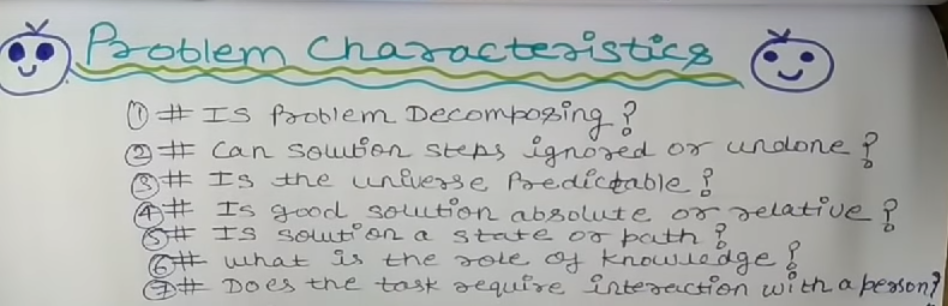 Problem Characteristics
① # Is Problem Decomposing ?
② # Can solution steps ignored or undone ?
③ # Is the universe Predictable ?
④ # Is good solution absolute or relative ?
⑤ # Is solution a state or path ?
⑥ # What is the role of Knowledge ?
⑦ # Does the task require interaction with a person ?